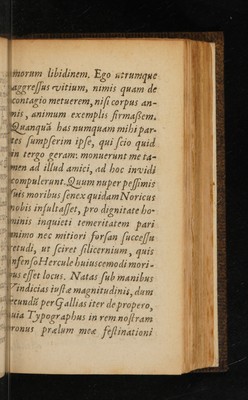 morum libidinem. Ego utrumque
aggressus vitium, nimis quam de
contagio metuerem, nisi corpus an-
nis, animum exemplis firmassem.
Quanquã has numquam mihi par-
tes sumpserim ipse, qui scio quid
in tergo geram: monuerunt me ta-
men ad illud amici, ad hoc invidi
compulerunt. Quum nuper pessimis
suis moribus senex quidam Noricus
nobis insultasset, pro dignitate ho-
minis inquieti temeritatem pari
animo nec mitiori forsan successu
retudi, ut sciret silicernium, quis
infenso Hercule huiuscemodi mori-
bus esset locus. Natas sub manibus
Vindicias iustæ magnitudinis, dum
secundũ per Gallias iter de propero,
quia Typographus in rem nostram
pronus prælum meæ festinationi